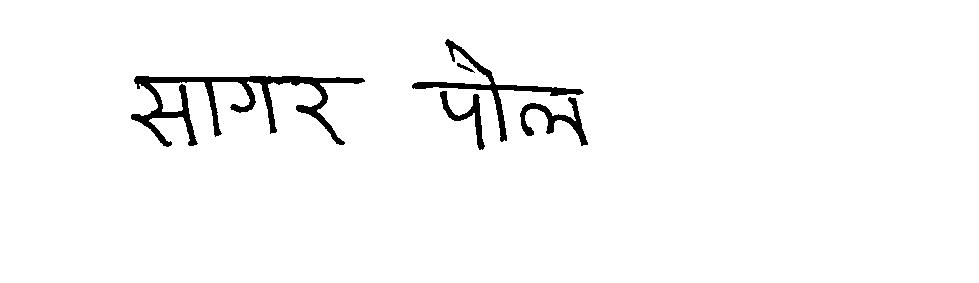 सागर पौल